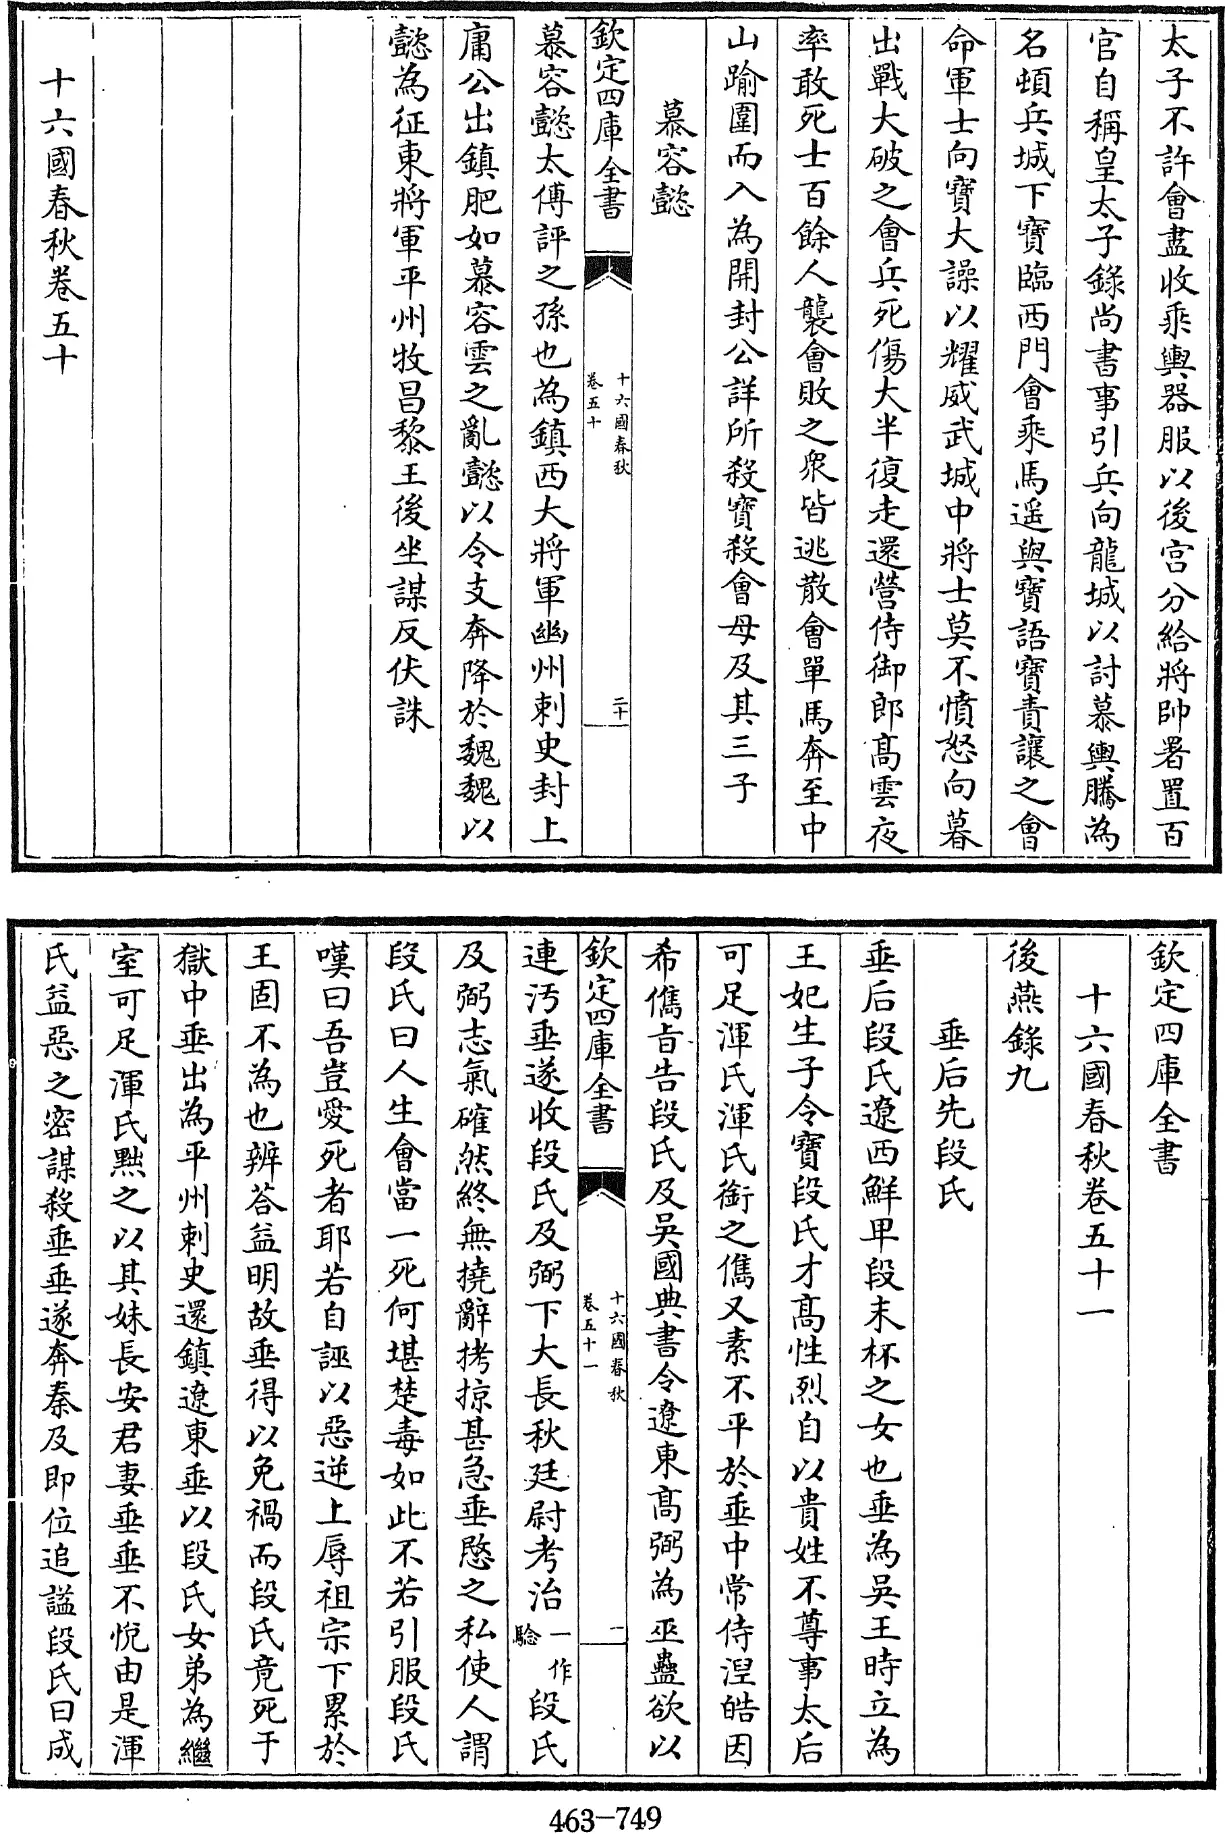 太子不許會盡收乘輿器服以後宫分給將帥署置百
官自稱皇太子錄尚書事引兵向龍城以討慕輿騰為
名頓兵城下寶臨西門會乘馬遥與寶語寶責讓之會
命軍士向寶大譟以耀威武城中將士莫不憤怒向暮
出戰大破之會兵死傷大半復走還營侍御郎髙雲夜
率敢死士百餘人襲會敗之衆皆逃散會單馬奔至中
山踰圍而入為開封公詳所殺寶殺會母及其三子
慕容懿
欽定四庫全書
十六國春秋
卷五十
二十
慕容懿太傅評之孫也為鎮西大將軍幽州刺史封上
庸公出鎮肥如慕容雲之亂懿以令支奔降於魏魏以
懿為征東將軍平州牧昌黎王後坐謀反伏誅
十六國春秋卷五十
欽定四庫全書
十六國春秋卷五十一
後燕錄九
垂后先段氏
垂后段氏遼西鮮卑段末杯之女也垂為吳王時立為
王妃生子令寶段氏才髙性烈自以貴姓不尊事太后
可足渾氏渾氏銜之儁又素不平於垂中常侍湼皓因
希儁旨告段氏及吳國典書令遼東髙弼為巫蠱欲以
欽定四庫全書
十六國春秋
卷五十一
一
連汚垂遂收段氏及弼下大長秋廷尉考治一作驗段氏
及弼志氣確然終無撓辭拷掠甚急垂愍之私使人謂
段氏曰人生會當一死何堪楚毒如此不若引服段氏
嘆曰吾豈愛死者耶若自誣以惡逆上辱祖宗下累於
王固不為也辨荅益明故垂得以免禍而段氏竟死于
獄中垂出為平州刺史還鎮遼東垂以段氏女弟為繼
室可足渾氏黜之以其妹長安君妻垂垂不悅由是渾
氏益惡之密謀殺垂垂遂奔秦及即位追諡段氏曰成
463-749